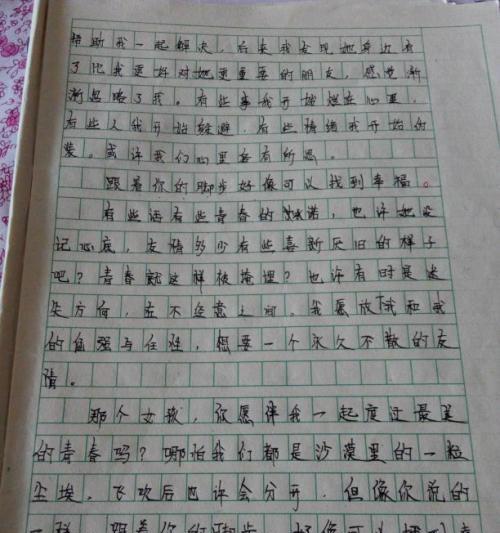 帮助我一起解决，后来我发现她身边有
了比我更好对她更重要的朋友，感觉渐
渐忽略了我。有些事我开始埋在心里，
有些人我开始躲避，有些情绪我开始伪
装。或许我们心里都有所思。
跟着你的脚步好像可以找到幸福。
有些话有些青春的承诺，也许她没
记心底，友情多少有些喜新厌旧的样子
吧？青春就这样被掩埋？也许有时是迷
失方向，在不经意之间。我愿放下我和我
的倔强与任性，想要一个永久不散的友
情。
那个女孩，你愿伴我一起度过最美
的青春吗？哪怕我们都是沙漠里的一粒
尘埃，飞吹后也许会分开，但像你说的
一样，跟着你的脚步，好像可以